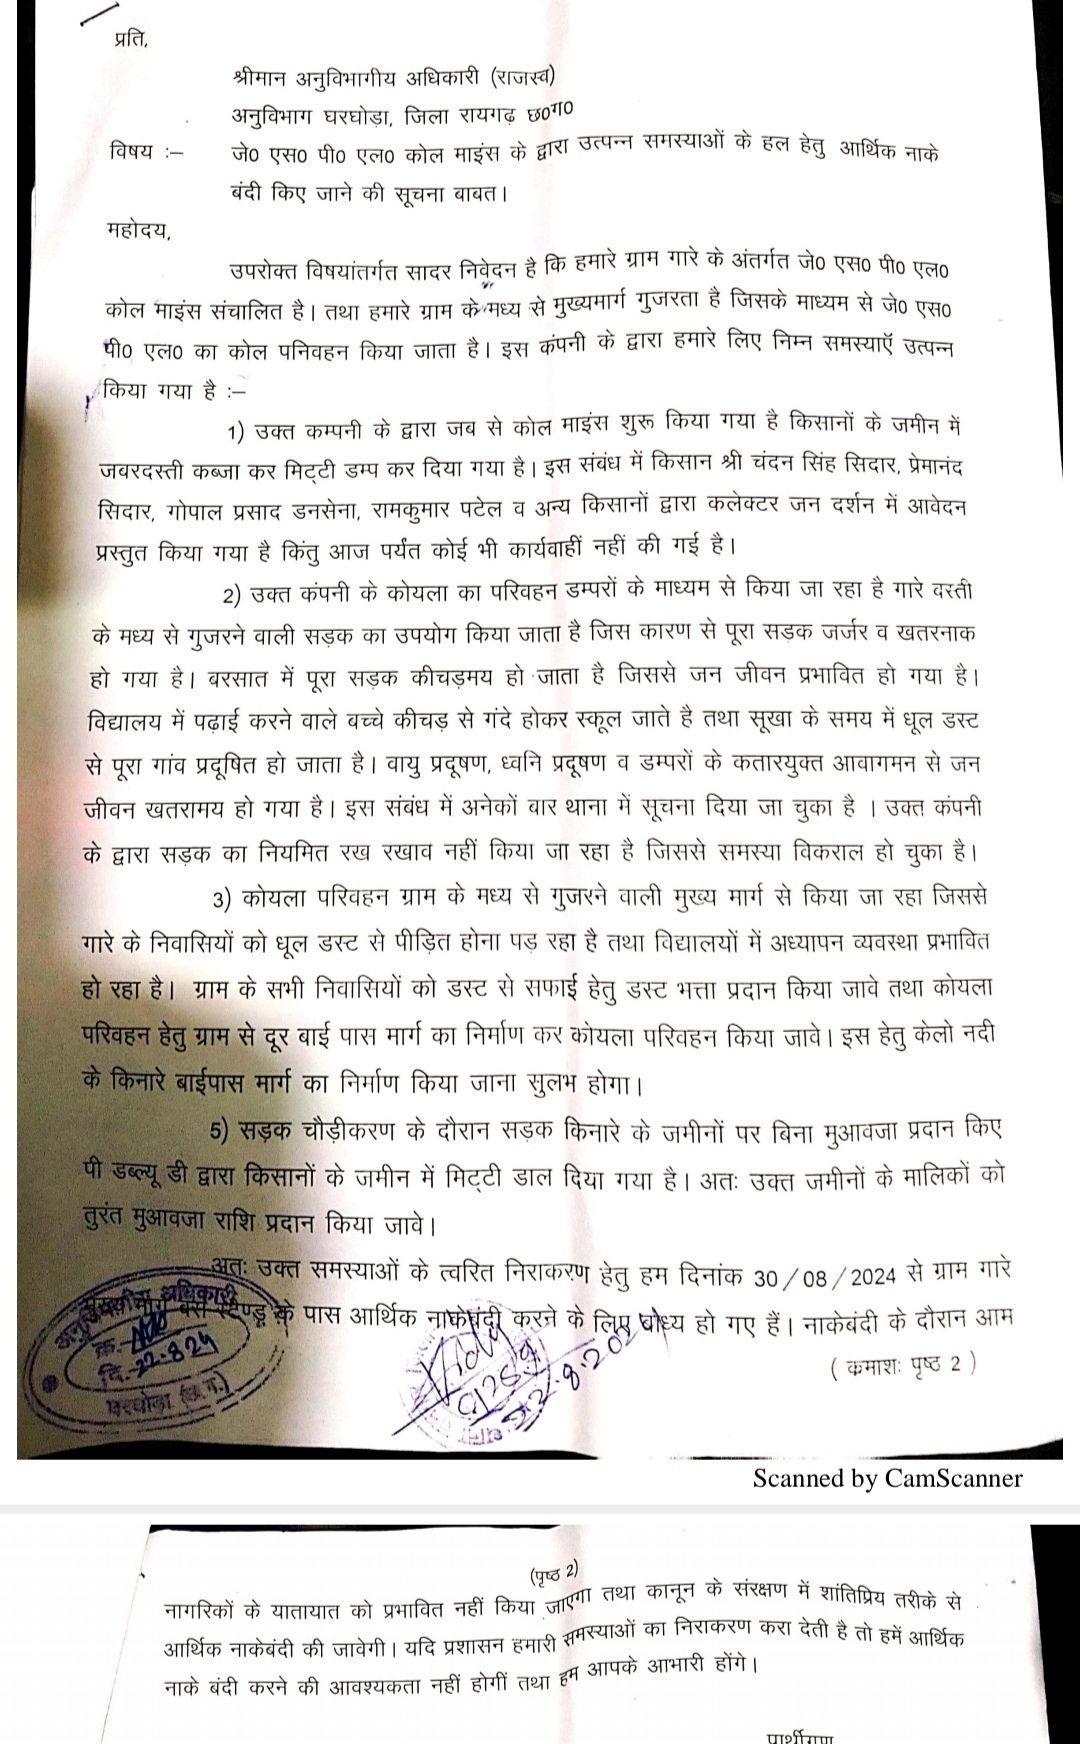 प्रति,
श्रीमान अनुविभागीय अधिकारी (राजस्व)
अनुविभाग घरघोड़ा, जिला रायगढ़ छ०ग०
विषय :– जे० एस० पी० एल० कोल माइंस के द्वारा उत्पन्न समस्याओं के हल हेतु आर्थिक नाके
बंदी किए जाने की सूचना बाबत।
महोदय,
उपरोक्त विषयांतर्गत सादर निवेदन है कि हमारे ग्राम गारे के अंतर्गत जे० एस० पी० एल०
कोल माइंस संचालित है। तथा हमारे ग्राम के मध्य से मुख्यमार्ग गुजरता है जिसके माध्यम से जे० एस०
पी० एल० का कोल पनिवहन किया जाता है। इस कंपनी के द्वारा हमारे लिए निम्न समस्याऍ उत्पन्न
किया गया है :–
1) उक्त कम्पनी के द्वारा जब से कोल माइंस शुरू किया गया है किसानों के जमीन में
जबरदस्ती कब्जा कर मिट्टी डम्प कर दिया गया है। इस संबंध में किसान श्री चंदन सिंह सिदार, प्रेमानंद
सिदार, गोपाल प्रसाद डनसेना, रामकुमार पटेल व अन्य किसानों द्वारा कलेक्टर जन दर्शन में आवेदन
प्रस्तुत किया गया है किंतु आज पर्यंत कोई भी कार्यवाहीं नहीं की गई है।
2) उक्त कंपनी के कोयला का परिवहन डम्परों के माध्यम से किया जा रहा है गारे वस्ती
के मध्य से गुजरने वाली सड़क का उपयोग किया जाता है जिस कारण से पूरा सडक जर्जर व खतरनाक
हो गया है। बरसात में पूरा सड़क कीचड़मय हो जाता है जिससे जन जीवन प्रभावित हो गया है।
विद्यालय में पढ़ाई करने वाले बच्चे कीचड़ से गंदे होकर स्कूल जाते है तथा सूखा के समय में धूल डस्ट
से पूरा गांव प्रदूषित हो जाता है। वायु प्रदूषण, ध्वनि प्रदूषण व डम्परों के कतारयुक्त आवागमन से जन
जीवन खतरामय हो गया है। इस संबंध में अनेकों बार थाना में सूचना दिया जा चुका है । उक्त कंपनी
के द्वारा सड़क का नियमित रख रखाव नहीं किया जा रहा है जिससे समस्या विकराल हो चुका है।
3) कोयला परिवहन ग्राम के मध्य से गुजरने वाली मुख्य मार्ग से किया जा रहा जिससे
गारे के निवासियों को धूल डस्ट से पीड़ित होना पड़ रहा है तथा विद्यालयों में अध्यापन व्यवस्था प्रभावित
हो रहा है। ग्राम के सभी निवासियों को डस्ट से सफाई हेतु डस्ट भत्ता प्रदान किया जावे तथा कोयला
परिवहन हेतु ग्राम से दूर बाई पास मार्ग का निर्माण कर कोयला परिवहन किया जावे। इस हेतु केलो नदी
के किनारे बाईपास मार्ग का निर्माण किया जाना सुलभ होगा।
5) सड़क चौड़ीकरण के दौरान सड़क किनारे के जमीनों पर बिना मुआवजा प्रदान किए
पी डब्ल्यू डी द्वारा किसानों के जमीन में मिट्टी डाल दिया गया है। अतः उक्त जमीनों के मालिकों को
तुरंत मुआवजा राशि प्रदान किया जावे।
अतः उक्त समस्याओं के त्वरित निराकरण हेतु हम दिनांक 30/08/2024 से ग्राम गारे
के पास आर्थिक नाकेबंदी करने के लिए बाध्य हो गए हैं। नाकेबंदी के दौरान आम
(कमाशः पृष्ठ 2)
अधिकारी
क्र.-
दि.-22.8.24
घरघोड़ा (छ.ग.)
22.8.2024
Scanned by CamScanner
(पृष्ठ 2)
नागरिकों के यातायात को प्रभावित नहीं किया जाएगा तथा कानून के संरक्षण में शांतिप्रिय तरीके से
आर्थिक नाकेबंदी की जावेगी। यदि प्रशासन हमारी समस्याओं का निराकरण करा देती है तो हमें आर्थिक
नाके बंदी करने की आवश्यकता नहीं होगीं तथा हम आपके आभारी होंगे।
प्रार्थीगण